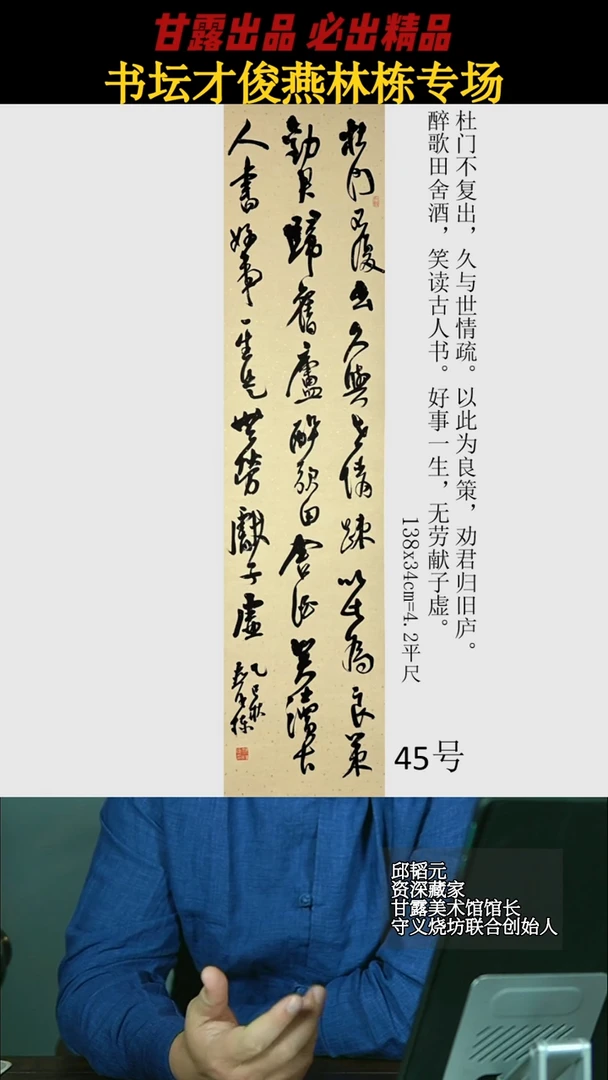 甘露出品 必出精品
书坛才俊燕林栋专场
杜门不复出，久与世情疏。以此为良策，劝君归旧庐。
醉歌田舍酒，笑读古人书。好事一生，无劳献子虚。
138x34cm=4.2平尺
45号
杜門不復出久與世情疎以此為良策
勸君歸舊廬醉歌田舍酒笑讀古
人書好事一生無勞獻子虛
乙巳秋
邱韬元
资深藏家
甘露美术馆馆长
守义烧坊联合创始人